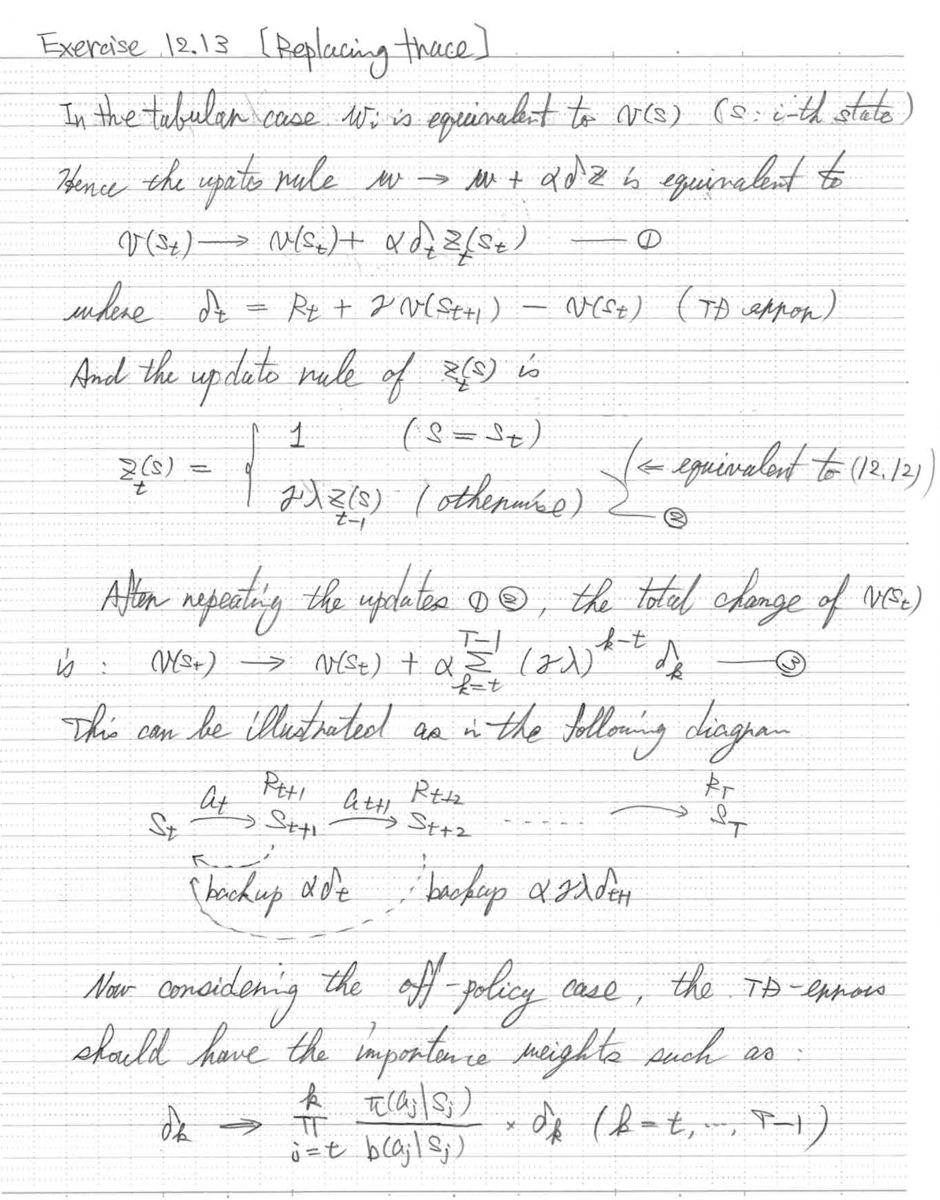 Exercise 12.13 [Replacing trace]
In the tabular case wi is equivalent to v(s) (s: i-th state)
Hence the upate rule w → w + αδz is equivalent to
v(St) → v(St) + αδt zt(St) — ①
where δt = Rt + γv(St+1) − v(St) (TD error)
And the update rule of zt(s) is
zt(s) = { 1 (s = St)
γλzt-1(s) (otherwise) } ← equivalent to (12.12) — ②
After repeating the updates ① ②, the total change of v(St)
is : v(St) → v(St) + α Σ_{k=t}^{T−1} (γλ)^{k−t} δk — ③
This can be illustrated as in the following diagram
St →(at) Rt+1 St+1 →(at+1) Rt+2 St+2 ----- → RT ST
backup αδt backup αγλδt+1
Now considering the off-policy case, the TD-errors
should have the importence weights such as :
δk → Π_{j=t}^{k} π(aj|Sj) / b(aj|Sj) × δk (k = t, ..., T−1)